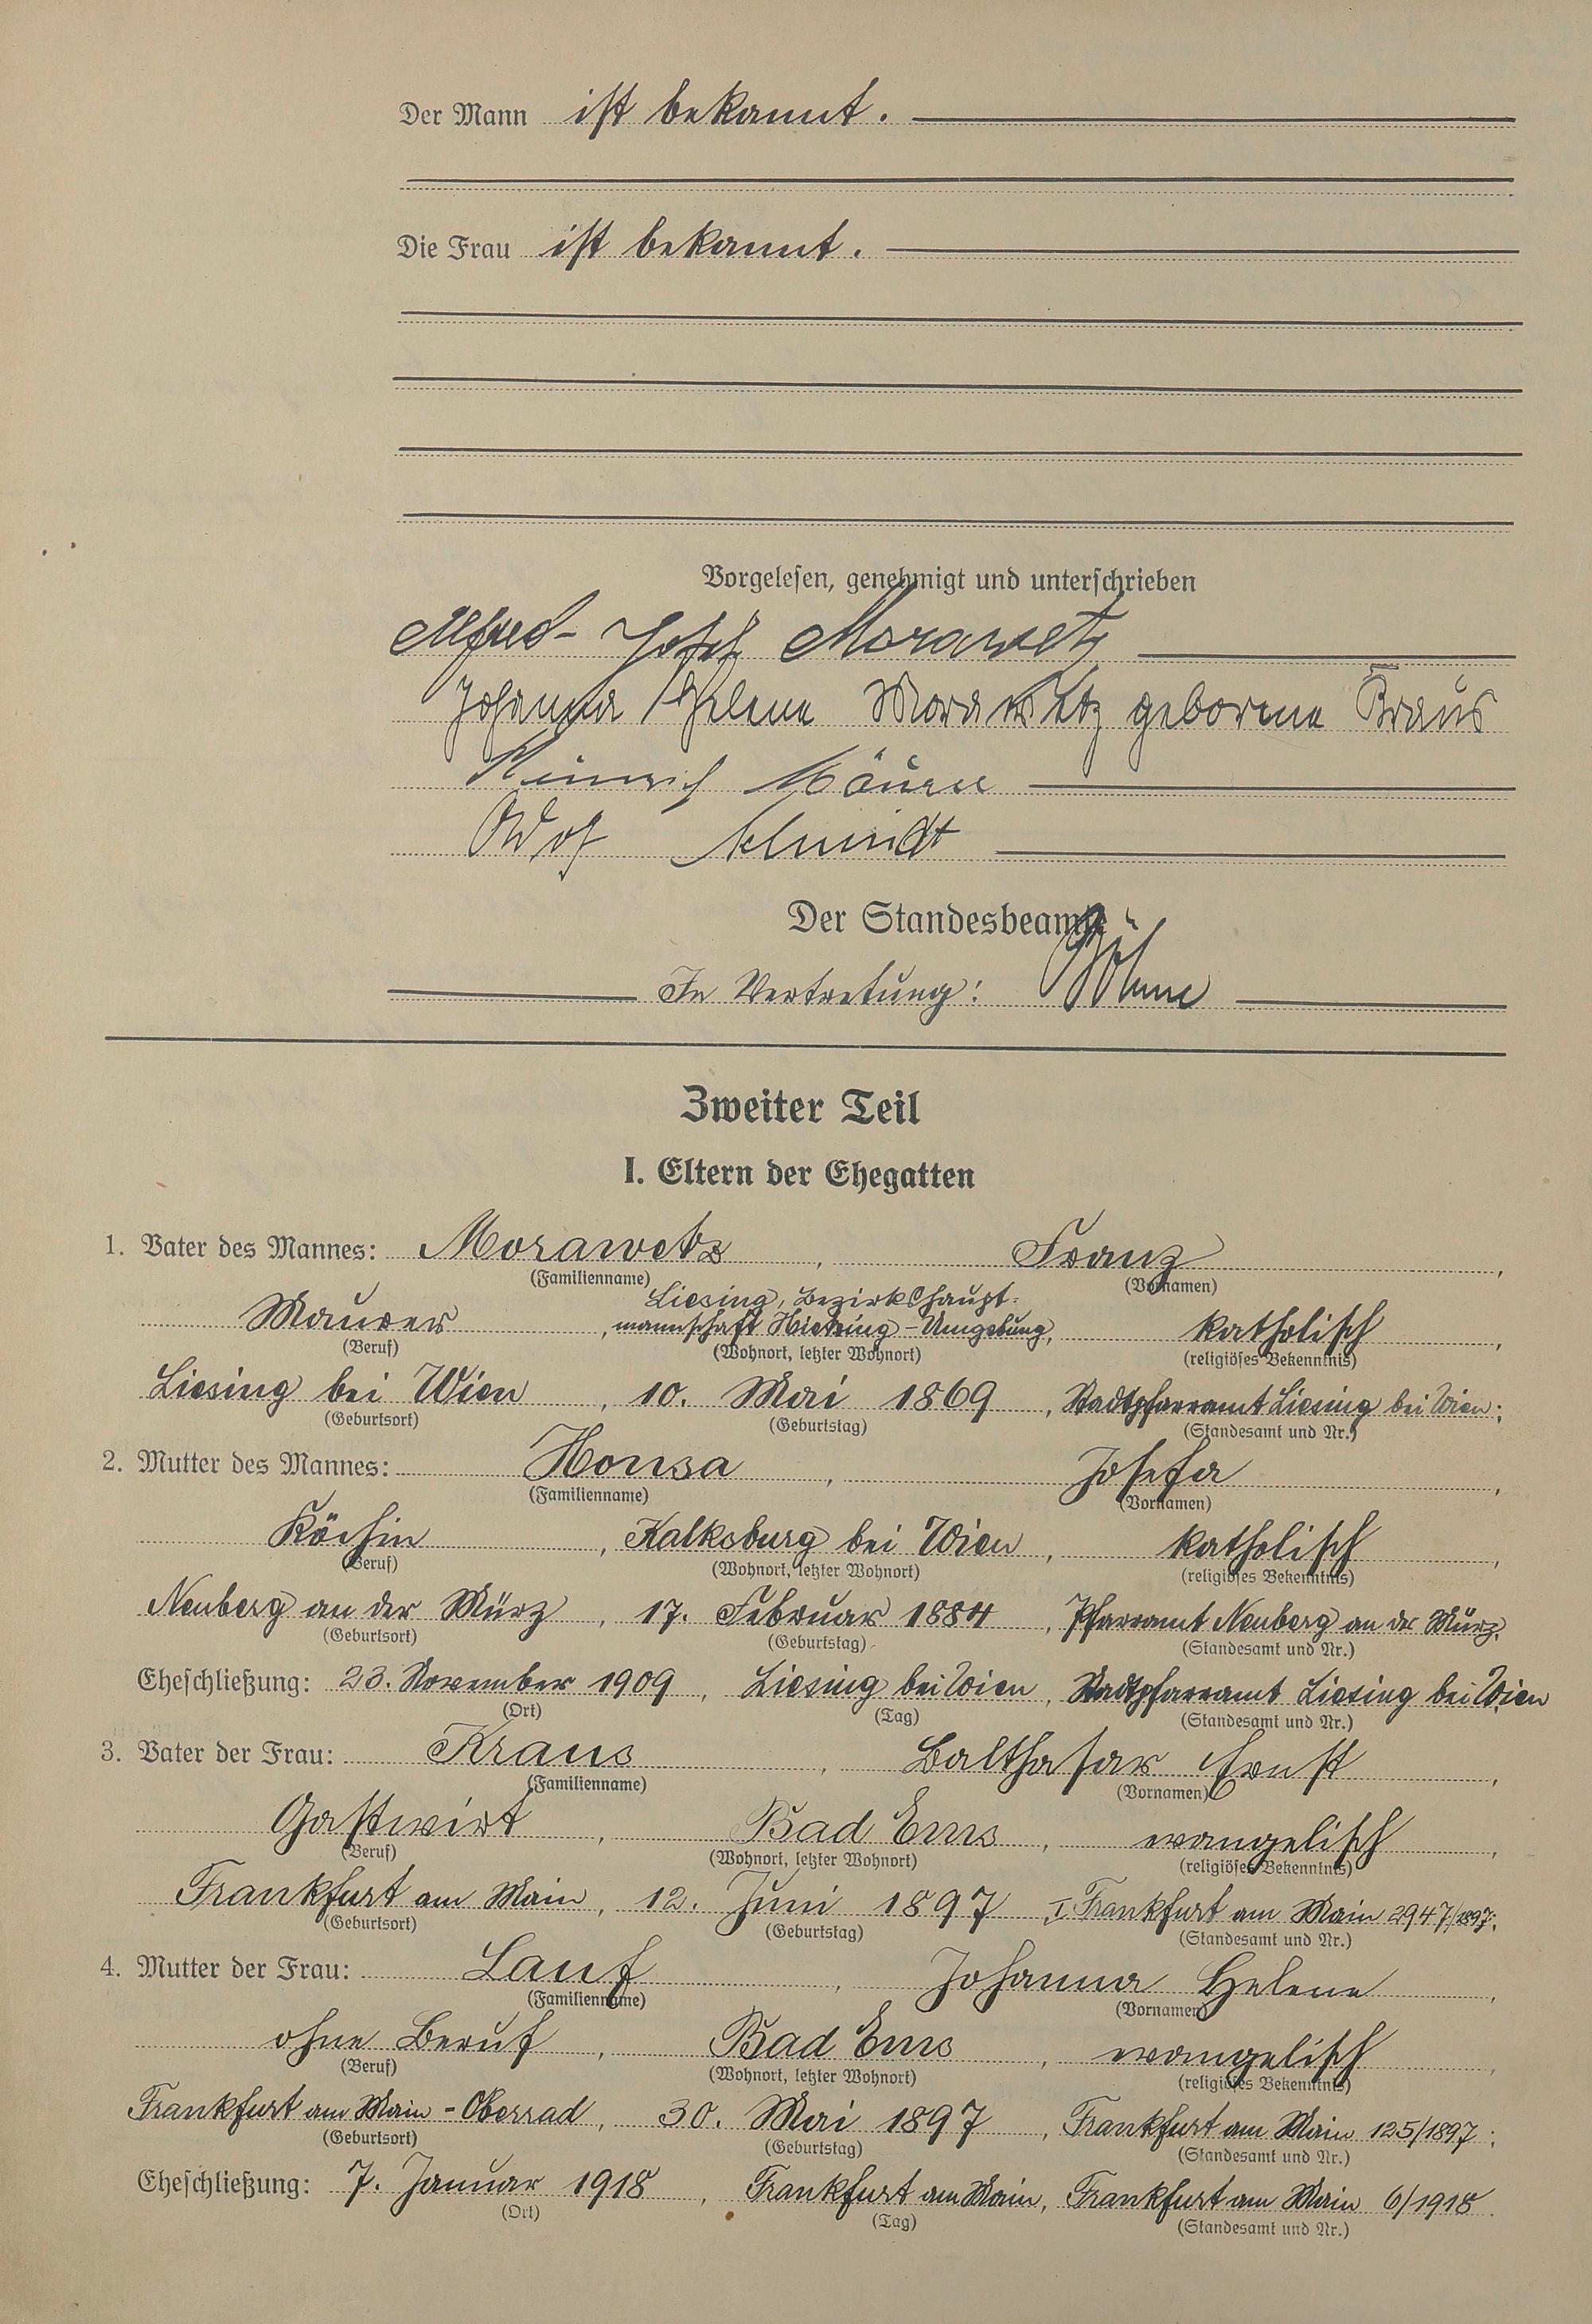 Der Mann ist bekannt.
Die Frau ist bekannt.
Vorgelesen, genehmigt und unterschrieben
Alfred Josef Morawetz
Johanna Helene Morawetz geborene Kraus
Heinrich
Schmidt
Der Standesbeamte
In Vertretung: Böhme
Zweiter Teil
I. Eltern der Ehegatten
1. Vater des Mannes: Morawetz, Franz,
(Familienname) (Vornamen)
Liesing, Bezirkshaupt-
Maurer, mannschaft Hietzing-Umgebung, katholisch,
(Beruf) (Wohnort, letzter Wohnort) (religiöses Bekenntnis)
Liesing bei Wien, 10. Mai 1869, Stadtpfarramt Liesing bei Wien;
(Geburtsort) (Geburtstag) (Standesamt und Nr.)
2. Mutter des Mannes: Honsa, Josefa,
(Familienname) (Vornamen)
Köchin, Kalksburg bei Wien, katholisch,
(Beruf) (Wohnort, letzter Wohnort) (religiöses Bekenntnis)
Neuberg an der Mürz, 17. Februar 1884, Pfarramt Neuberg an der Mürz.
(Geburtsort) (Geburtstag) (Standesamt und Nr.)
Eheschließung: 23. November 1909, Liesing bei Wien, Stadtpfarramt Liesing bei Wien
(Ort) (Tag) (Standesamt und Nr.)
3. Vater der Frau: Kraus, Balthasar Ernst,
(Familienname) (Vornamen)
Gastwirt, Bad Ems, evangelisch,
(Beruf) (Wohnort, letzter Wohnort) (religiöses Bekenntnis)
Frankfurt am Main, 12. Juni 1897, I. Frankfurt am Main 2947/1897;
(Geburtsort) (Geburtstag) (Standesamt und Nr.)
4. Mutter der Frau: Lauf, Johanna Helene,
(Familienname) (Vornamen)
ohne Beruf, Bad Ems, evangelisch,
(Beruf) (Wohnort, letzter Wohnort) (religiöses Bekenntnis)
Frankfurt am Main-Oberrad, 30. Mai 1897, Frankfurt am Main 125/1897;
(Geburtsort) (Geburtstag) (Standesamt und Nr.)
Eheschließung: 7. Januar 1918, Frankfurt am Main, Frankfurt am Main 6/1918.
(Ort) (Tag) (Standesamt und Nr.)